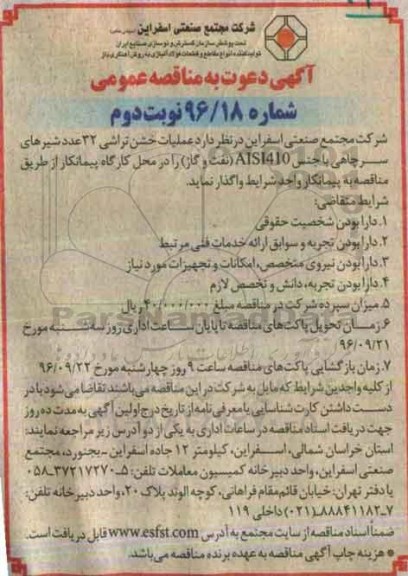 شرکت مجتمع صنعتی اسفراین (سهامی خاص)
تحت پوشش سازمان گسترش و نوسازی صنایع ایران
تولیدکننده انواع مقاطع و قطعات فولاد آلیاژی به روش آهنگری باز
آگهی دعوت به مناقصه عمومی
شماره ۹۶/۱۸ نوبت دوم
شرکت مجتمع صنعتی اسفراین درنظر دارد عملیات خشن تراشی ۳۲ عدد شیرهای
سرچاهی با جنس AISI410 (نفت و گاز) را در محل کارگاه پیمانکار از طریق
مناقصه به پیمانکار واجد شرایط واگذار نماید.
شرایط متقاضی:
۱. دارا بودن شخصیت حقوقی
۲. دارا بودن تجربه و سوابق ارائه خدمات فنی مرتبط
۳. دارا بودن نیروی متخصص، امکانات و تجهیزات مورد نیاز
۴. دارا بودن تجربه، دانش و تخصص لازم
۵. میزان سپرده شرکت در مناقصه مبلغ ۴۰/۰۰۰/۰۰۰ ریال
۶. زمان تحویل پاکت های مناقصه تا پایان ساعت اداری روز سه شنبه مورخ
۹۶/۰۹/۲۱
۷. زمان بازگشایی پاکت های مناقصه ساعت ۹ روز چهارشنبه مورخ ۹۶/۰۹/۲۲
از کلیه واجدین شرایط که مایل به شرکت در این مناقصه می باشند تقاضا می شود با در
دست داشتن کارت شناسایی یا معرفی نامه از تاریخ درج اولین آگهی به مدت ده روز
جهت دریافت اسناد مناقصه در ساعات اداری به یکی از دو آدرس زیر مراجعه نمایند:
استان خراسان شمالی، اسفراین، کیلومتر ۱۲ جاده اسفراین - بجنورد، مجتمع
صنعتی اسفراین، واحد دبیرخانه کمیسیون معاملات تلفن: ۵-۰۵۸۳۷۲۱۷۲۷۰
یا دفتر تهران: خیابان قائم مقام فراهانی، کوچه الوند پلاک ۲۰، واحد دبیرخانه تلفن:
۷-۸۸۸۴۱۱۸۲ (۰۲۱) داخلی ۱۱۹
ضمناً اسناد مناقصه از سایت مجتمع به آدرس www.esfst.com قابل دریافت است.
* هزینه چاپ آگهی مناقصه به عهده برنده مناقصه می باشد.